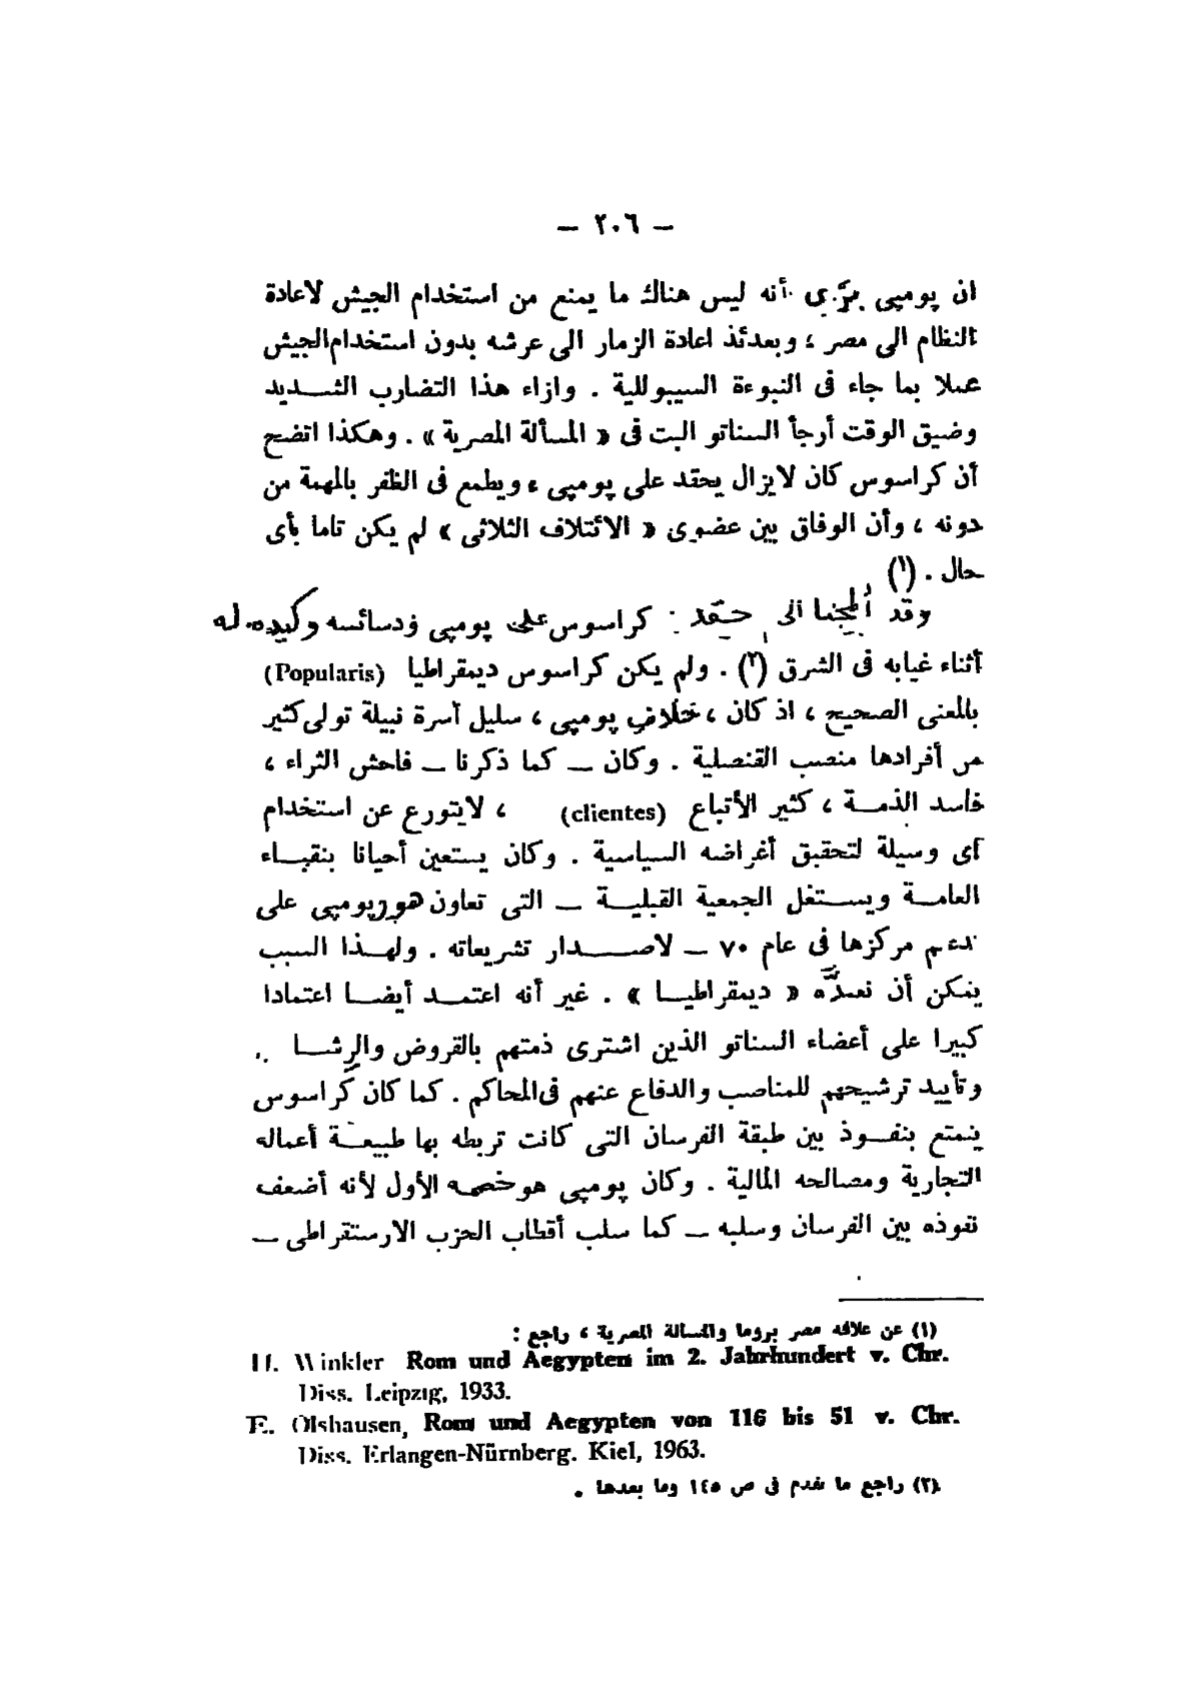 — ٢٠٦ —
ان پومپى يرى أنه ليس هناك ما يمنع من استخدام الجيش لاعادة
النظام الى مصر ، وبعدئذ اعادة الزمار الى عرشه بدون استخدام الجيش
عملا بما جاء فى النبوءة السيبوللية . وازاء هذا التضارب الشديد
وضيق الوقت أرجأ السناتو البت فى « المسألة المصرية » . وهكذا اتضح
أن كراسوس كان لايزال يحقد على پومپى ، ويطمع فى الظفر بالمهمة من
دونه ، وأن الوفاق بين عضوى « الائتلاف الثلاثى » لم يكن تاما بأى
حال . (١)
وقد ألمحنا الى حقد كراسوس على پومپى ودسائسه وكيده له
أثناء غيابه فى الشرق (٢) . ولم يكن كراسوس ديمقراطيا (Popularis)
بالمعنى الصحيح ، اذ كان ، خلاف پومپى ، سليل أسرة نبيلة تولى كثير
من أفرادها منصب القنصلية . وكان — كما ذكرنا — فاحش الثراء ،
فاسد الذمة ، كثير الأتباع (clientes) ، لايتورع عن استخدام
أى وسيلة لتحقيق أغراضه السياسية . وكان يستعين أحيانا بنقباء
العامة ويستغل الجمعية القبلية — التى تعاون هو وپومپى على
دعم مركزها فى عام ٧٠ — لاصدار تشريعاته . ولهذا السبب
يمكن أن نعده « ديمقراطيا » . غير أنه اعتمد أيضا اعتمادا
كبيرا على أعضاء السناتو الذين اشترى ذمتهم بالقروض والرشا
وتأييد ترشيحهم للمناصب والدفاع عنهم فى المحاكم . كما كان كراسوس
يتمتع بنفوذ بين طبقة الفرسان التى كانت تربطه بها طبيعة أعماله
التجارية ومصالحه المالية . وكان پومپى هو خصمه الأول لأنه أضعف
نفوذه بين الفرسان وسلبه — كما سلب أقطاب الحزب الارستقراطى —
(١) عن علاقة مصر بروما والمسألة المصرية ، راجع :
H. Winkler Rom und Aegypten im 2. Jahrhundert v. Chr.
Diss. Leipzig, 1933.
E. Olshausen, Rom und Aegypten von 116 bis 51 v. Chr.
Diss. Erlangen-Nürnberg. Kiel, 1963.
(٢) راجع ما تقدم فى ص ١٤٥ وما بعدها .